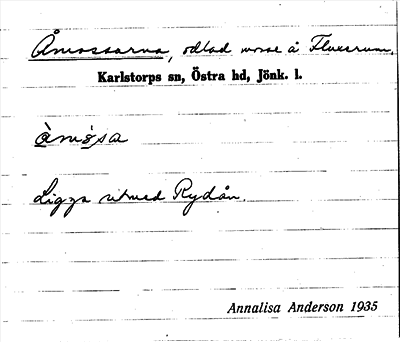 Åmossarna, odlad mosse å Fluxerum.
Karlstorps sn, Östra hd, Jönk. l.
àmo̊sa
Ligga utmed Rydån.
Annalisa Anderson 1935